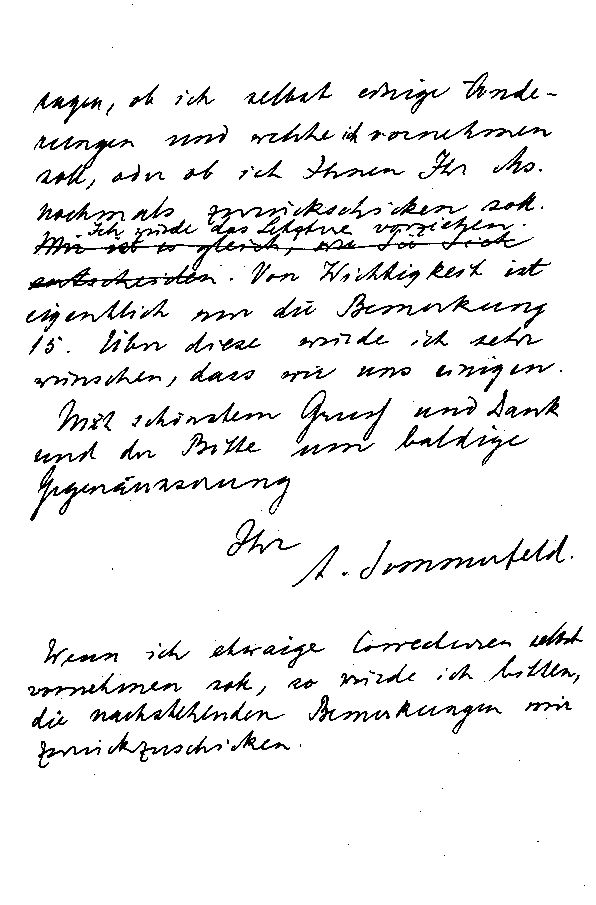 sagen, ob ich selbst einige Ände-
rungen und welche ich vornehmen
soll, oder ob ich Ihnen Ihr Ms.
nochmals zurückschicken soll.
Ich würde das Letztere vorziehen.
Mir ist es gleich, wie Sie Sich
entscheiden. Von Wichtigkeit ist
eigentlich nur die Bemerkung
15. Über diese würde ich sehr
wünschen, dass wir uns einigen.
Mit schönstem Gruss und Dank
und der Bitte um baldige
Gegenäusserung
Ihr
A. Sommerfeld.
Wenn ich etwaige Correcturen selbst
vornehmen soll, so würde ich bitten,
die nachstehenden Bemerkungen mir
zurückzuschicken.